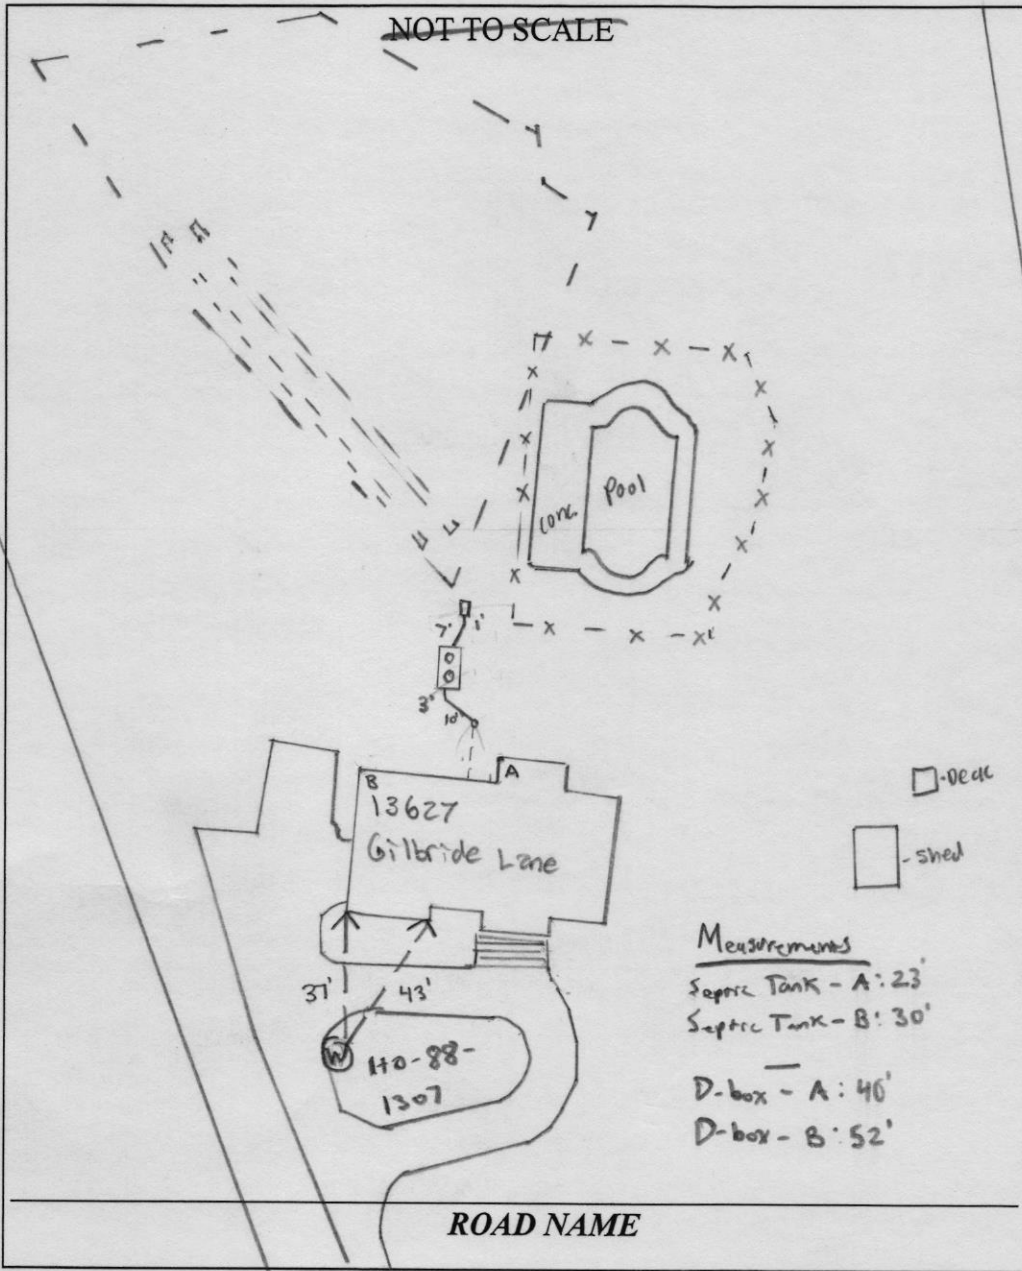 NOT TO SCALE
Pool
conc.
7' 1'
3'
10'
A
B
13627
Gilbride Lane
-Deck
-shed
37'
43'
W
HO-88-
1307
Measurements
Septic Tank - A: 23'
Septic Tank - B: 30'
D-box - A: 40'
D-box - B: 52'
ROAD NAME